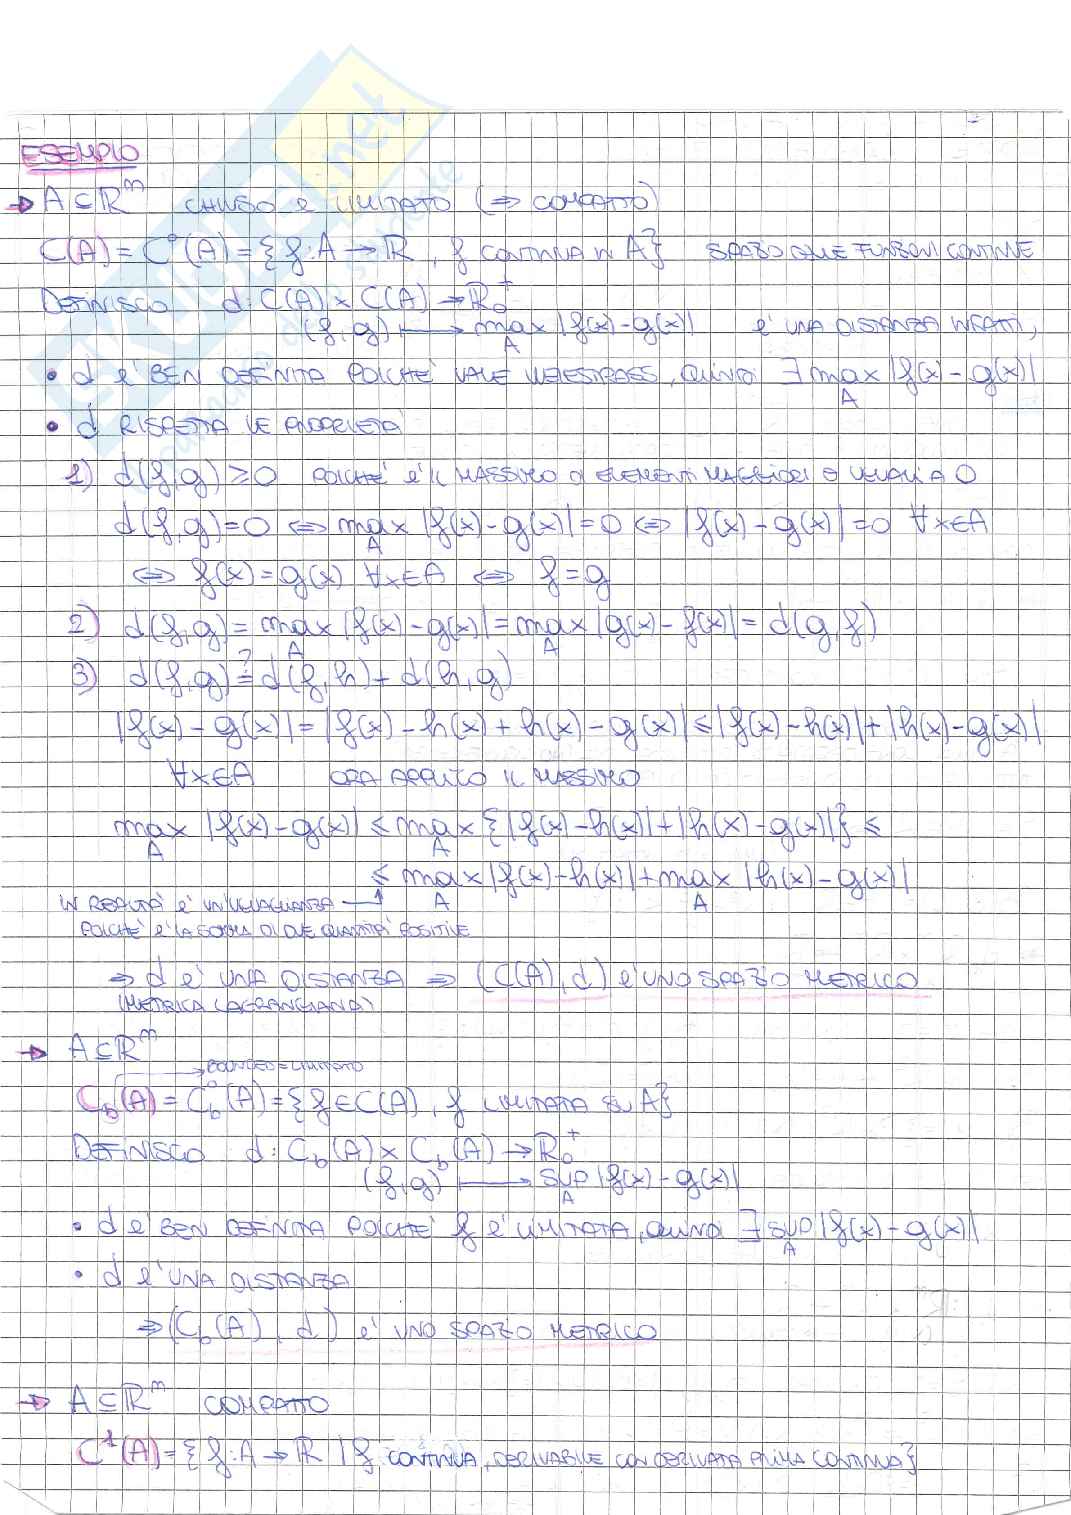 ESEMPIO
→ A ⊆ ℝᵐ CHIUSO E LIMITATO (⇒ COMPATTO)
C(A) = C⁰(A) = {f: A → ℝ, f CONTINUA IN A} SPAZIO DELLE FUNZIONI CONTINUE
DEFINISCO d: C(A) × C(A) → ℝ₀⁺
(f,g) ⟼ max_A |f(x) - g(x)| E' UNA DISTANZA INFATTI,
• d E' BEN DEFINITA POICHE' VALE WEIESTRASS, QUINDI ∃ max_A |f(x) - g(x)|
• d RISPETTA LE PROPRIETA'
1) d(f,g) ≥ 0 POICHE' E' IL MASSIMO DI ELEMENTI MAGGIORI O UGUALI A 0
d(f,g) = 0 ⇔ max_A |f(x) - g(x)| = 0 ⇔ |f(x) - g(x)| = 0 ∀x∈A
⇔ f(x) = g(x) ∀x∈A ⇔ f = g
2) d(f,g) = max_A |f(x) - g(x)| = max_A |g(x) - f(x)| = d(g,f)
3) d(f,g) ≟ d(f,h) + d(h,g)
|f(x) - g(x)| = |f(x) - h(x) + h(x) - g(x)| ≤ |f(x) - h(x)| + |h(x) - g(x)|
∀x∈A ORA APPLICO IL MASSIMO
max_A |f(x) - g(x)| ≤ max_A {|f(x) - h(x)| + |h(x) - g(x)|} ≤
≤ max_A |f(x) - h(x)| + max_A |h(x) - g(x)|
IN REALTA' E' UN'UGUAGLIANZA →
POICHE' E' LA SOMMA DI DUE QUANTITA' POSITIVE
⇒ d E' UNA DISTANZA ⇒ (C(A), d) E' UNO SPAZIO METRICO
(METRICA LAGRANGIANA)
→ A ⊆ ℝᵐ
→ BOUNDED = LIMITATO
C_b(A) = C_b⁰(A) = {f ∈ C(A), f LIMITATA SU A}
DEFINISCO d: C_b(A) × C_b(A) → ℝ₀⁺
(f,g) ⟼ SUP_A |f(x) - g(x)|
• d E' BEN DEFINITA POICHE' f E' LIMITATA, QUINDI ∃ SUP_A |f(x) - g(x)|
• d E' UNA DISTANZA
⇒ (C_b(A), d) E' UNO SPAZIO METRICO
→ A ⊆ ℝᵐ COMPATTO
C¹(A) = {f: A → ℝ | f CONTINUA, DERIVABILE CON DERIVATA PRIMA CONTINUA}